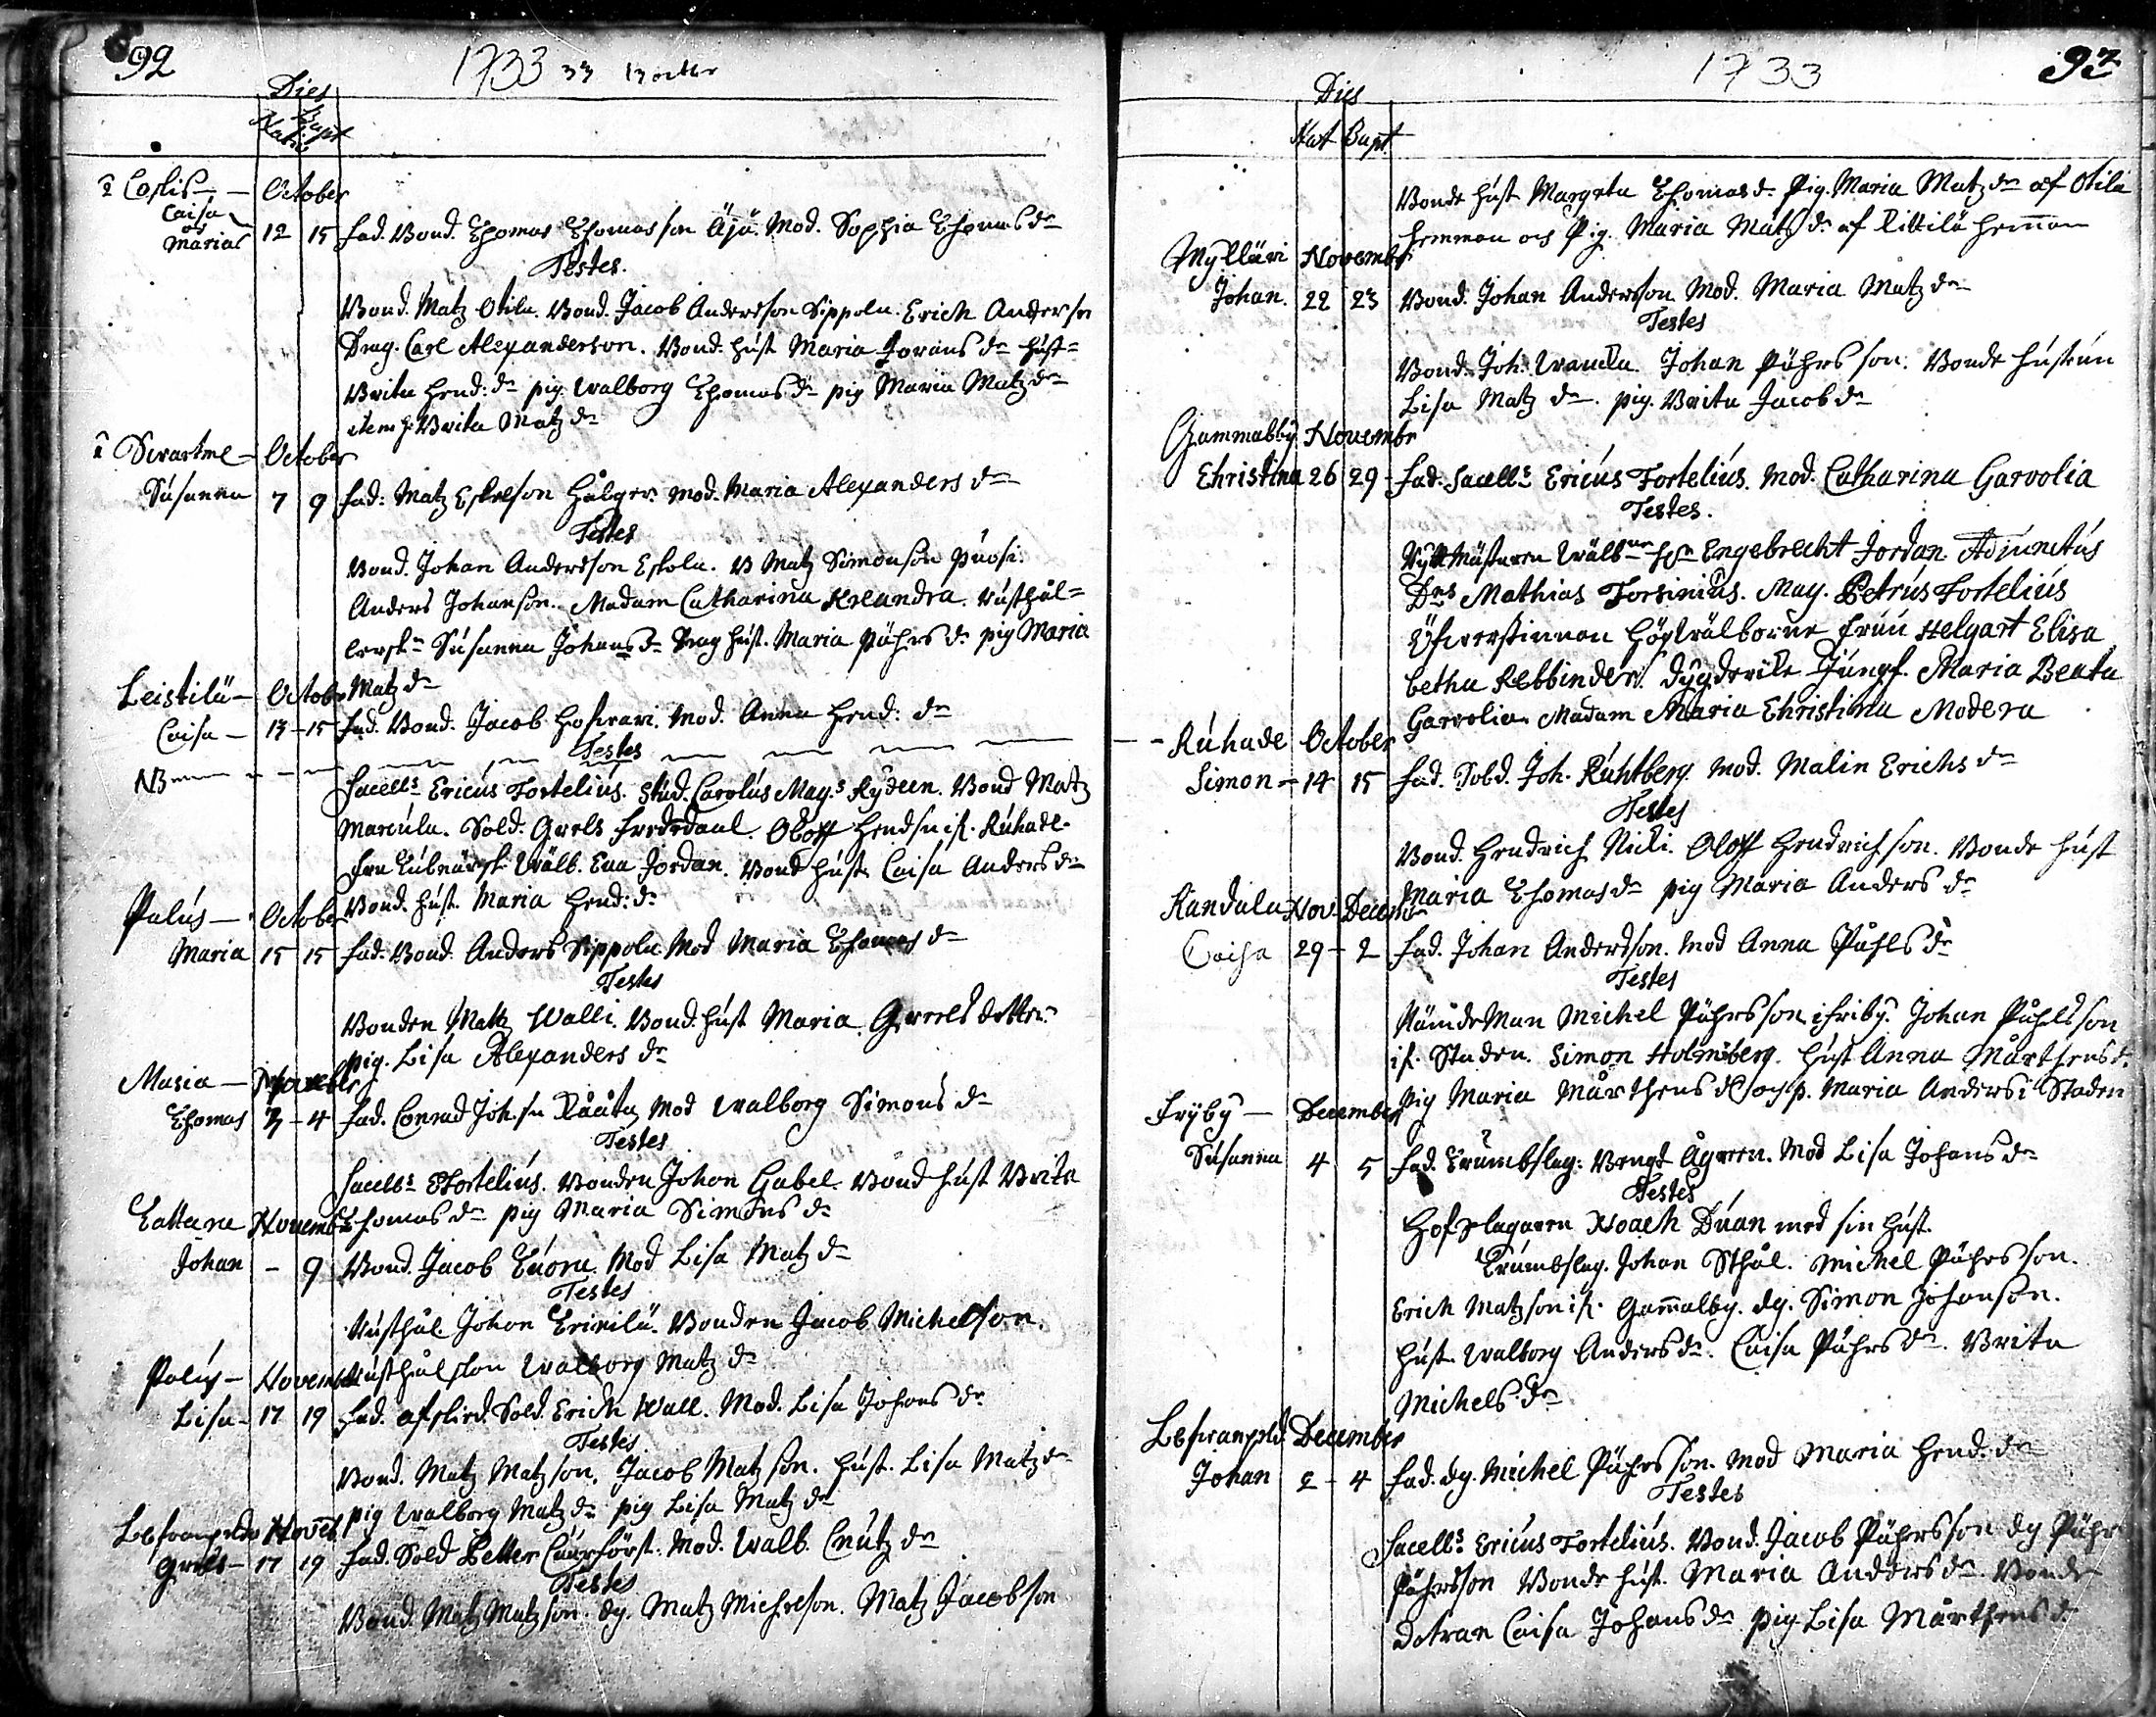 92
1733 33
Dies
Natiu Bapt
Caslis — October
Caisa
och
Maria 12 15 fad. Bond. Thomas Thomasson Äjä. Mod. Sophia Thomas dr
Testes.
Bond. Matz Otila. Bond. Jacob Andersson Sippola. Erich Anderson
Drag. Carl Alexanderson. Bond. Hust Maria Jörans dr Hust=
Brita Hend: dr pig Walborg Thomas dr pig Maria Matz dr
item H. Brita Matz dr
Swartme — October
Susanna 7 9 fad: Matz Eskelson Hålger. Mod. Maria Alexanders dr
Testes
Bond. Johan Andersson Eskola. B Matz Simonson Puosi.
Anders Johanson. Madam Catharina Kreandra. Rusthål=
lersk. Susanna Johans dr Drag hust. Maria Påhrs dr pig Maria
Matz dr
Leistilä — October
Caisa — 13 — 15 fad. Bond. Jacob Hofwari. Mod. Anna Hend: dr
Testes
NB
Sacells Ericus Fortelius. Stud. Carolus Mag.s Rydeen. Bond Matz
Marcula. Sold. Grels Fredsdaal. Oloff Hendson if. Ruhade.
Wälb. Eva Jordan. Bond Hust. Caisa Anders dr
Bond. Hust. Maria Hend: dr
Palus — October
Maria 15 15 fad. Bond. Anders Sippola Mod Maria Thomas dr
Testes
Bonden Matz Walli. Bond. Hust Maria Greels dotter.
pig. Lisa Alexanders dr
Masia — Novembr
Thomas 3 — 4 fad. Conrad Joh.sn Rååta Mod Walborg Simons dr
Testes
Sacells EFortelius. Bonden Johan Gabel. Bond Hust Brita
Thomas dr pig Maria Simons dr
Lattana Novemb
Johan — 9 Bond. Jacob Tuora. Mod Lisa Matz dr
Testes
Rusthål. Johan Erikilä. Bonden Jacob Michelson.
Rusthålskan Walborg Matz dr
Palus — Novemb
Lisa — 17 19 fad. afskied. Sold. Erich Wall. Mod. Lisa Johans dr
Testes
Bond. Matz Matzson. Jacob Matzson. Hust. Lisa Matz dr
pig Walborg Matz dr pig Lisa Matz dr
Novēb
Grels — 17 19 fad. Sold Petter Curförst. Mod. Walb. Cnutz dr
Testes
Bond. Matz Matzson. dg. Matz Michelson. Matz Jacobson
1733 93
Dies
Nat Bapt
Bonde Hust Margeta Thomas dr. Pig. Maria Matz dr af Otila
Hemman och Pig. Maria Matz dr af Kittilä Heman
Mylläri Novembr
Johan. 22 23 Bond. Johan Andersson Mod. Maria Matz dr
Testes
Bond. Joh. Wamila. Johan Påhrsson. Bonde Hustrun
Lisa Matz dr. pig. Brita Jacob dr
Gammalby Novembr
Christina 26 29 fad. Sacells Ericus Fortelius. Mod. Catharina Garvolia
Testes.
Ryttmästaren Wälbne Hr Engebrecht Jordan. Adjunctus
Dns Mathias Forsinius. Mag. Petrus Fortelius
Öfwerstinnan Högwälborne Fruu Helgart Elisa
betha Rebbinder. Dygderike Jungf. Maria Beata
Garvolia. Madam Maria Christina Modera
Ruhade October
Simon — 14 15 fad. Sold. Joh. Ruhtberg. Mod. Malin Erichs dr
Testes
Bond. Hendrich Nicki. Oloff Hendrichson. Bonde Hust
Maria Thomas dr pig Maria Anders dr
Kandala Nov. Decemb
Caisa 29 — 2 fad. Johan Andersson. Mod Anna Påhls dr
Testes
Nämdeman Michel Påhrsson, if. Friby. Johan Påhlsson
if. Staden. Simon Holmberg. Hust Anna Mårthens dr.
pig Maria Mårthens dr och p. Maria Anders i Staden
Fryby — December
Susanna 4 5 fad. Trumbslag: Bengt Ågreen. Mod Lisa Johans dr
Testes
Hofslagaren Noach Duan med sin Hust.
Trumbslag. Johan Sthål. Michel Påhrsson.
Erich Matzson if. Gamalby. dg. Simon Johanson.
Hust. Walborg Anders dr. Caisa Påhrs dr. Brita
Michels dr
December
Johan 2 — 4 fad. dg. Michel Påhrsson. Mod Maria Hend. dr
Testes
Sacells Ericus Fortelius. Bond. Jacob Påhrsson dg Påhr
Påhrsson Bonde Hust. Maria Anders dr. Bonde
dotran Caisa Johans dr. pig Lisa Mårthens dr